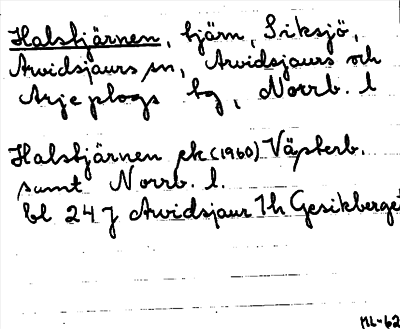 Halstjärnen, tjärn, Siksjö,
Arvidsjaurs sn, Arvidsjaurs och
Arjeplogs tg, Norrb. l
Halstjärnen ek (1960) Västerb.
samt Norrb. l.
bl 24 J Arvidsjaur 1h Gesikberget
ML-62